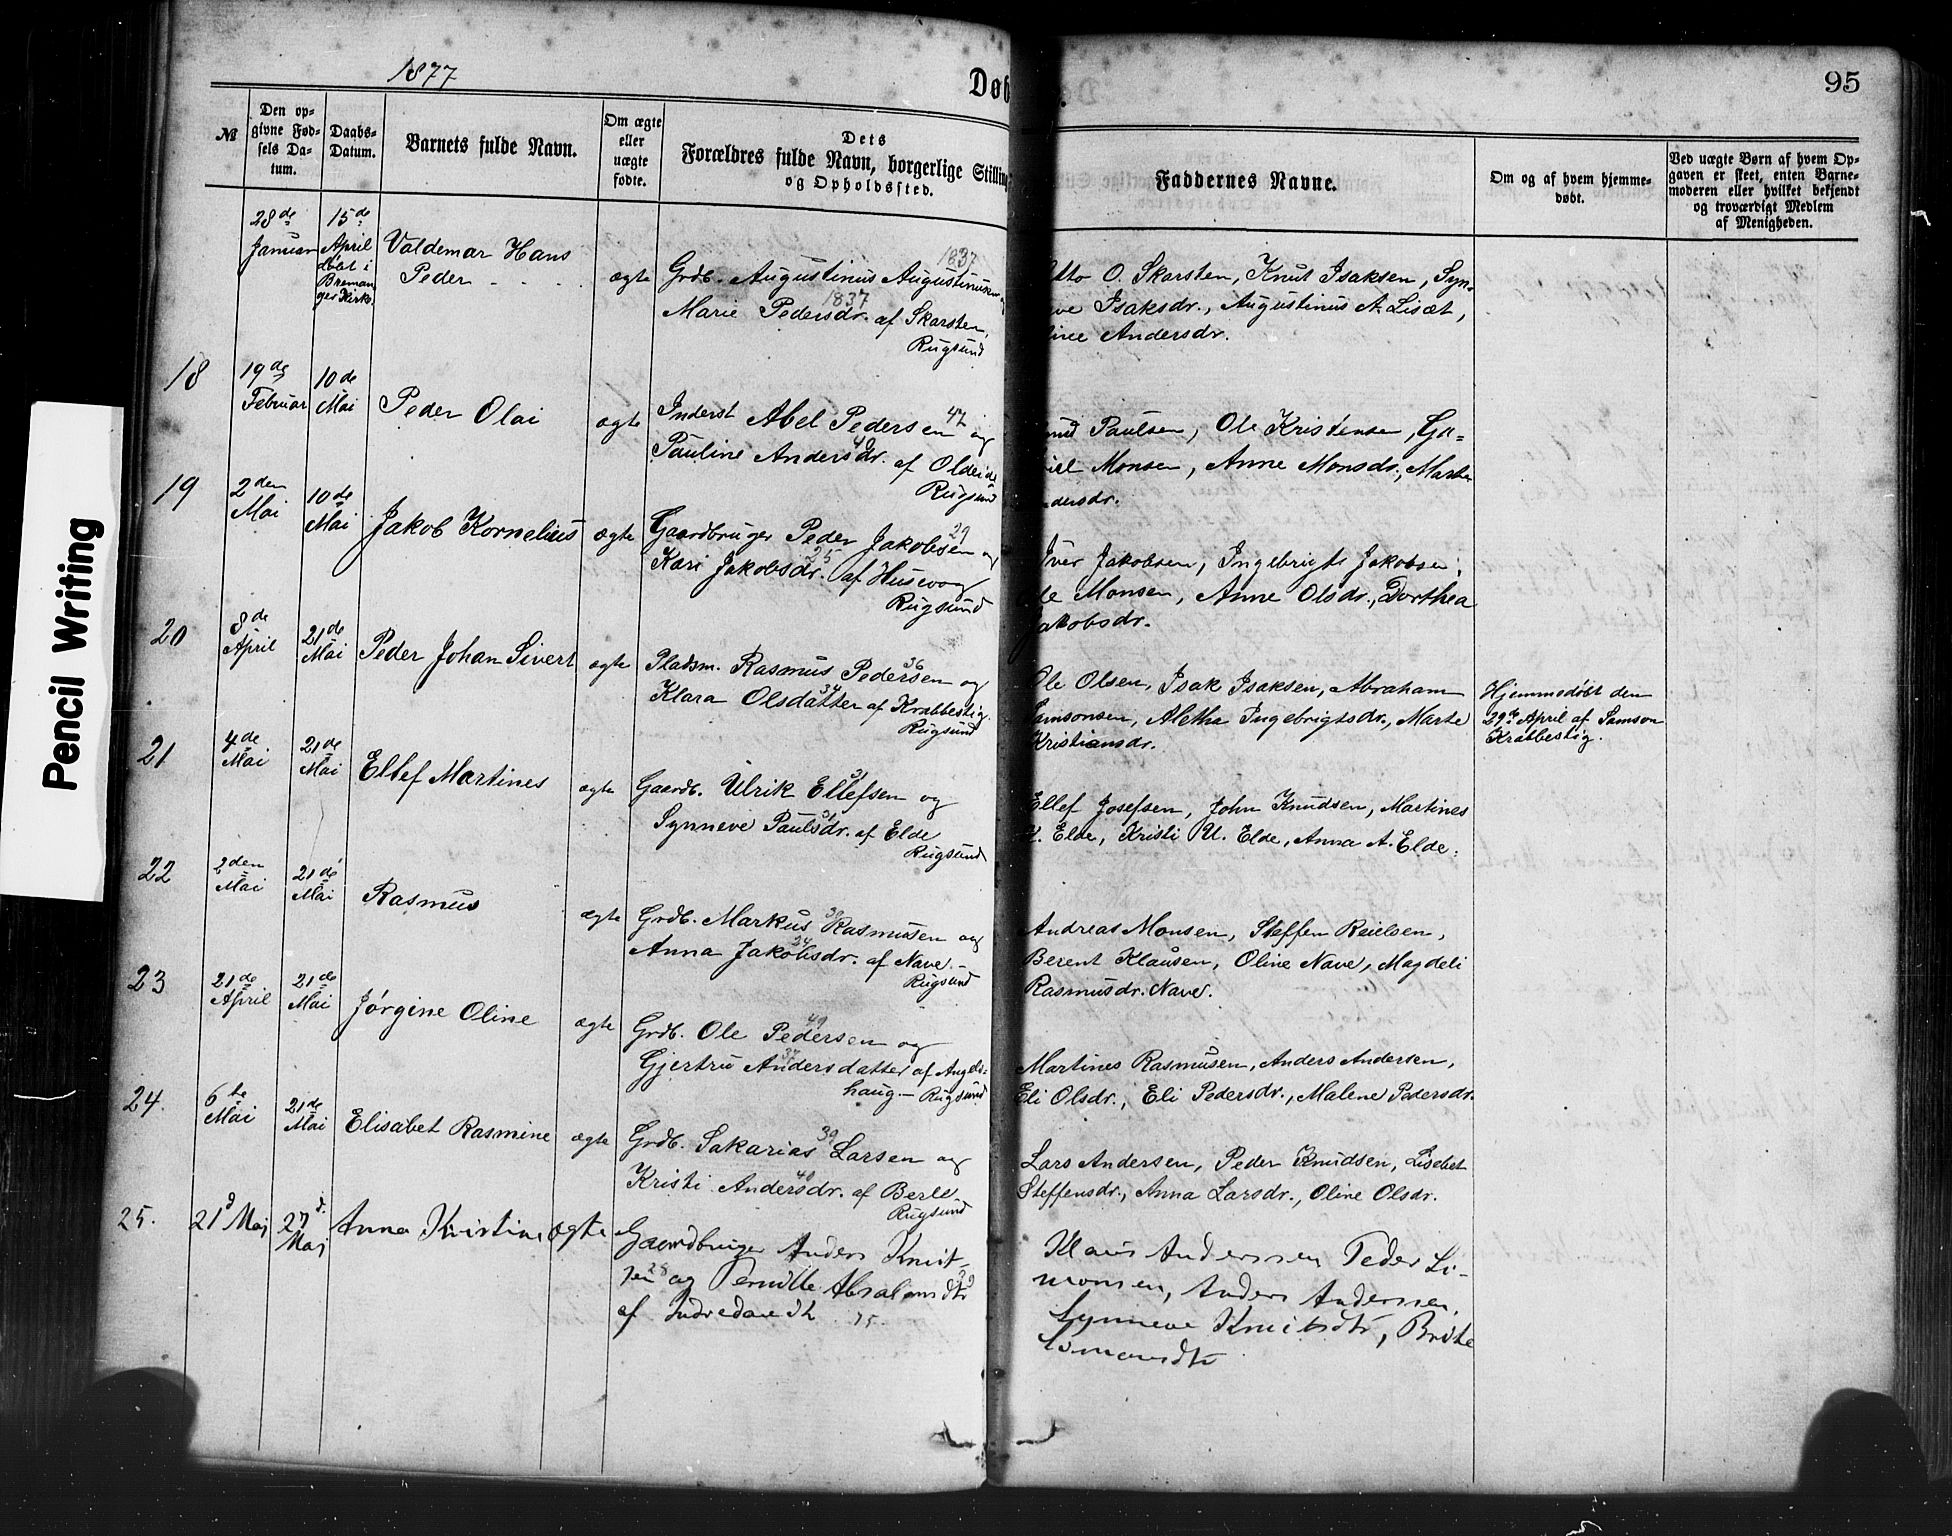 1877
Døb
95
№
Den op-
givne Fød-
sels Da-
tum.
Daabs-
Datum.
Barnets fulde Navn.
Om ægte
eller
uægte
fødte.
Dets
Forældres fulde Navn, borgerlige Stilling
og Opholdssted.
Faddernes Navne.
Om og af hvem hjemme-
døbt.
Ved uægte Børn af hvem Op-
gaven er skeet, enten Barne-
moderen eller hvilket bekjendt
og troværdigt Medlem
af Menigheden.
28de
Januar
15de
April
døbt i
Breman-
ger Kirke
Valdemar Hans
Peder
ægte
1837
Grdb. Augustinus Augustinusen og
1837
Marie Pedersdr. af Skarsten,
Rugsund
Otto O. Skarsten, Knut Isaksen, Syn-
ve Isaksdr., Augustinus A. Lisæt,
ine Andersdr.
18
19de
Februar
10de
Mai
Peder Olai
ægte
Inderst Abel Pedersen 47 og
Pauline Andersdr. 40 af Oldeide
Rugsund
und Paulsen, Ole Kristensen, Ga-
riel Monsen, Anne Monsdr., Marta
ndersdr.
19
2den
Mai
10de
Mai
Jakob Kornelius
ægte
Gaardbruger Peder Jakobsen 29 og
Kari Jakobsdr. 25 af Husevog
Rugsund
Iver Jakobsen, Ingebrigt Jakobsen,
Ole Monsen, Anne Olsdr., Dorthea
Jakobsdr.
20
8de
April
21de
Mai
Peder Johan Sivert
ægte
Pladsm. Rasmus Pedersen 36 og
Klara Olsdatter 34 af Krabbestig.
Rugsund
Ole Olsen, Isak Isaksen, Abraham
Samsonsen, Aletha Ingebrigtsdr., Marte
Kristiansdr.
Hjemmedøbt den
29de April af Samson
Krabbestig.
21
4de
Mai
21de
Mai
Ellef Martines
ægte
Gaardb. Ulrik Ellefsen 31 og
Synneve Paulsdr. 31 af Elde
Rugsund
Ellef Josefsen, John Knudsen, Martines
K. Elde, Kristi U. Elde, Anna A. Elde.
22
2den
Mai
21de
Mai
Rasmus
ægte
Grdb. Markus Rasmusen og
Anna Jakobsdr. 24 af Nave
Rugsund
Andreas Monsen, Steffen Reielsen,
Berent Klausen, Oline Nave, Magdeli
Rasmusdr. Nave.
23
21de
April
21de
Mai
Jørgine Oline
ægte
Grdb. Ole Pedersen 49 og
Gjertru Andersdatter 37 af Angels-
haug - Rugsund
Martines Rasmusen, Anders Andersen,
Eli Olsdr., Eli Pedersdr., Malene Pedersdr.
24.
6te
Mai
21de
Mai
Elisabet Rasmine
ægte
Grdb. Sakarias 39 Larsen og
Kristi Andersdr. 40 af Berle.
Rugsund
Lars Andersen, Peder Knudsen, Lisebet
Steffensdr., Anna Larsdr., Oline Olsdr.
25.
21d Maj
27d.
Maj
Anna Kristine
ægte
Gaardbruger Anders Knut-
sen 28 og Pernille Absalonsdtr 29
af Indredavik 75.
Klaus Anderssen Peder Si-
monsen, Anders Anderssen,
Synneve Knutsdtr, Brite
Simonsdtr
Pencil Writing